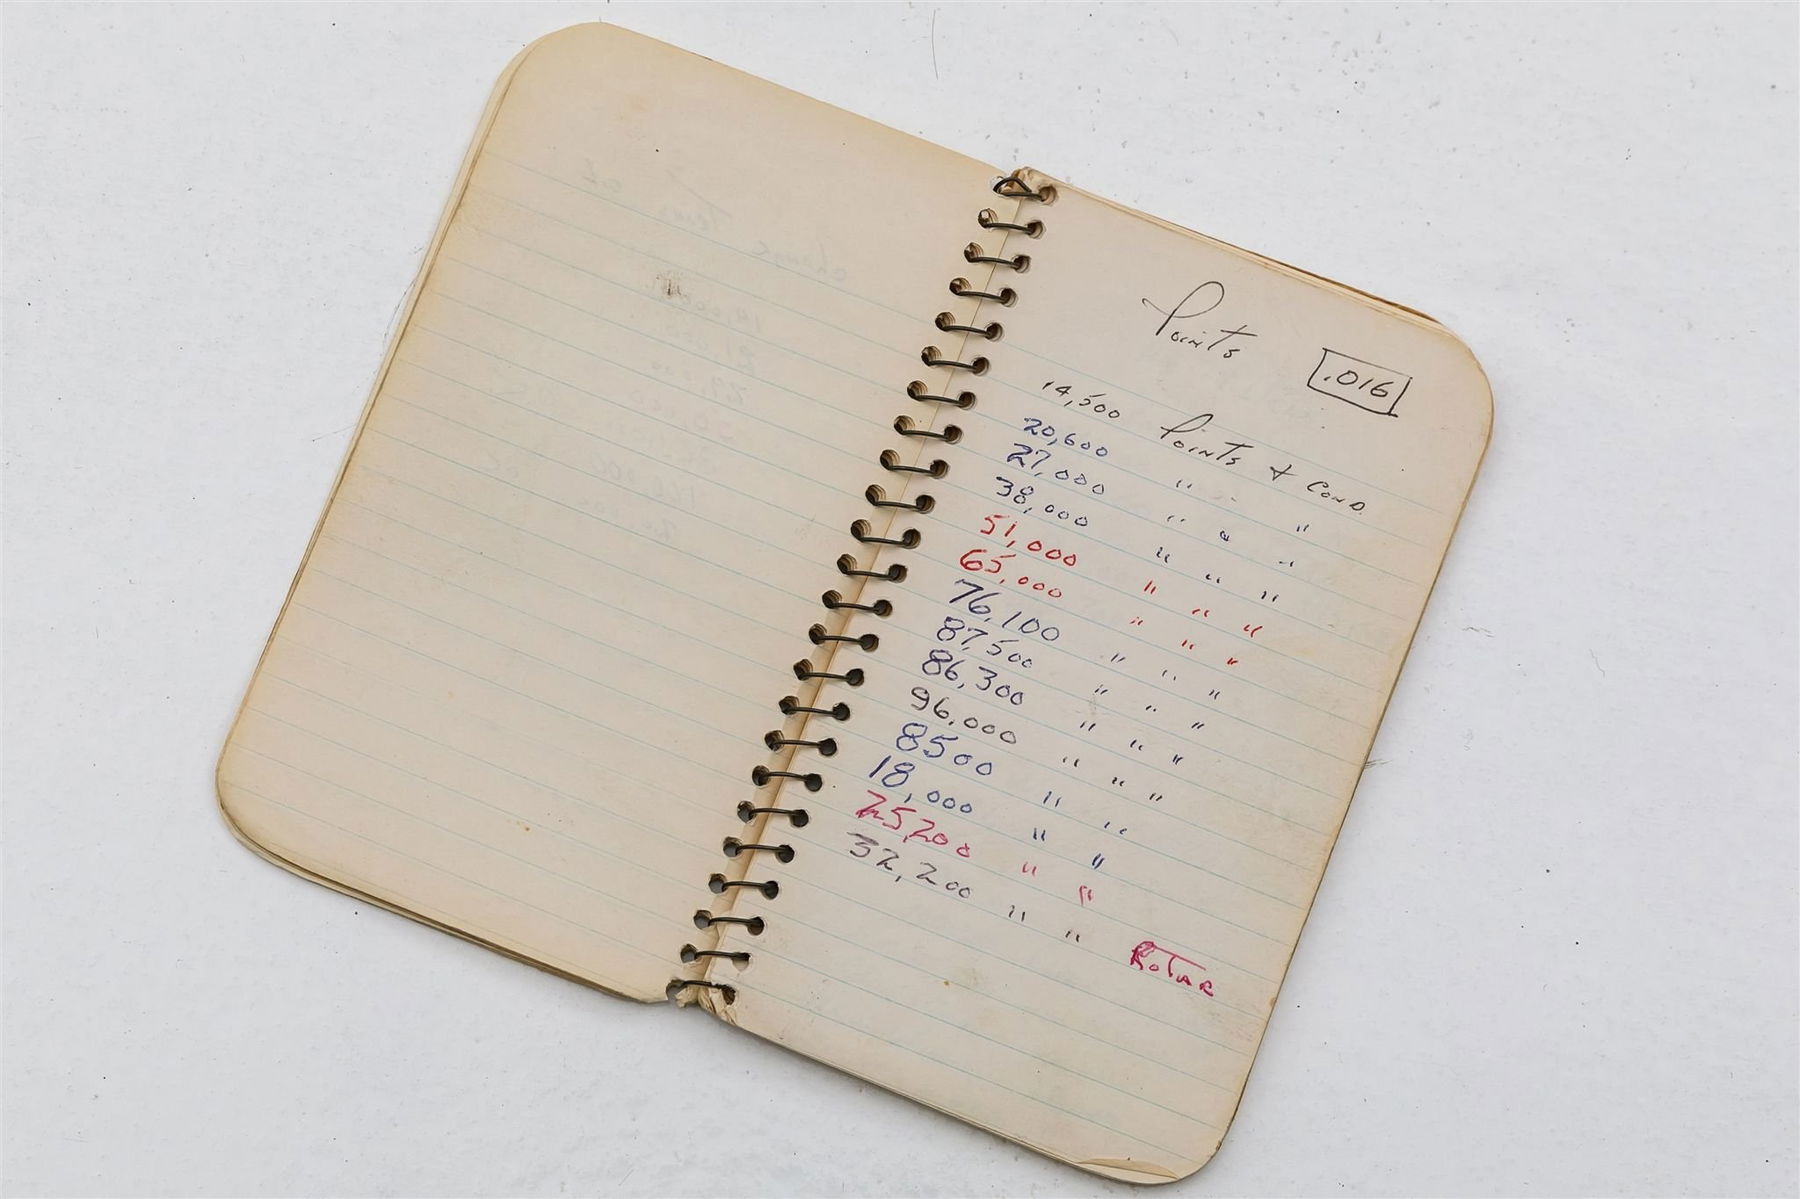 Points
.016
14,500 Points & Cond.
20,600 " " "
27,000 " " "
38,000 " " "
51,000 " " "
65,000 " " "
76,100 " " "
87,500 " " "
86,300 " " "
96,000 " " "
8500 " "
18,000 " "
25200 " "
32,200 " " Rotor